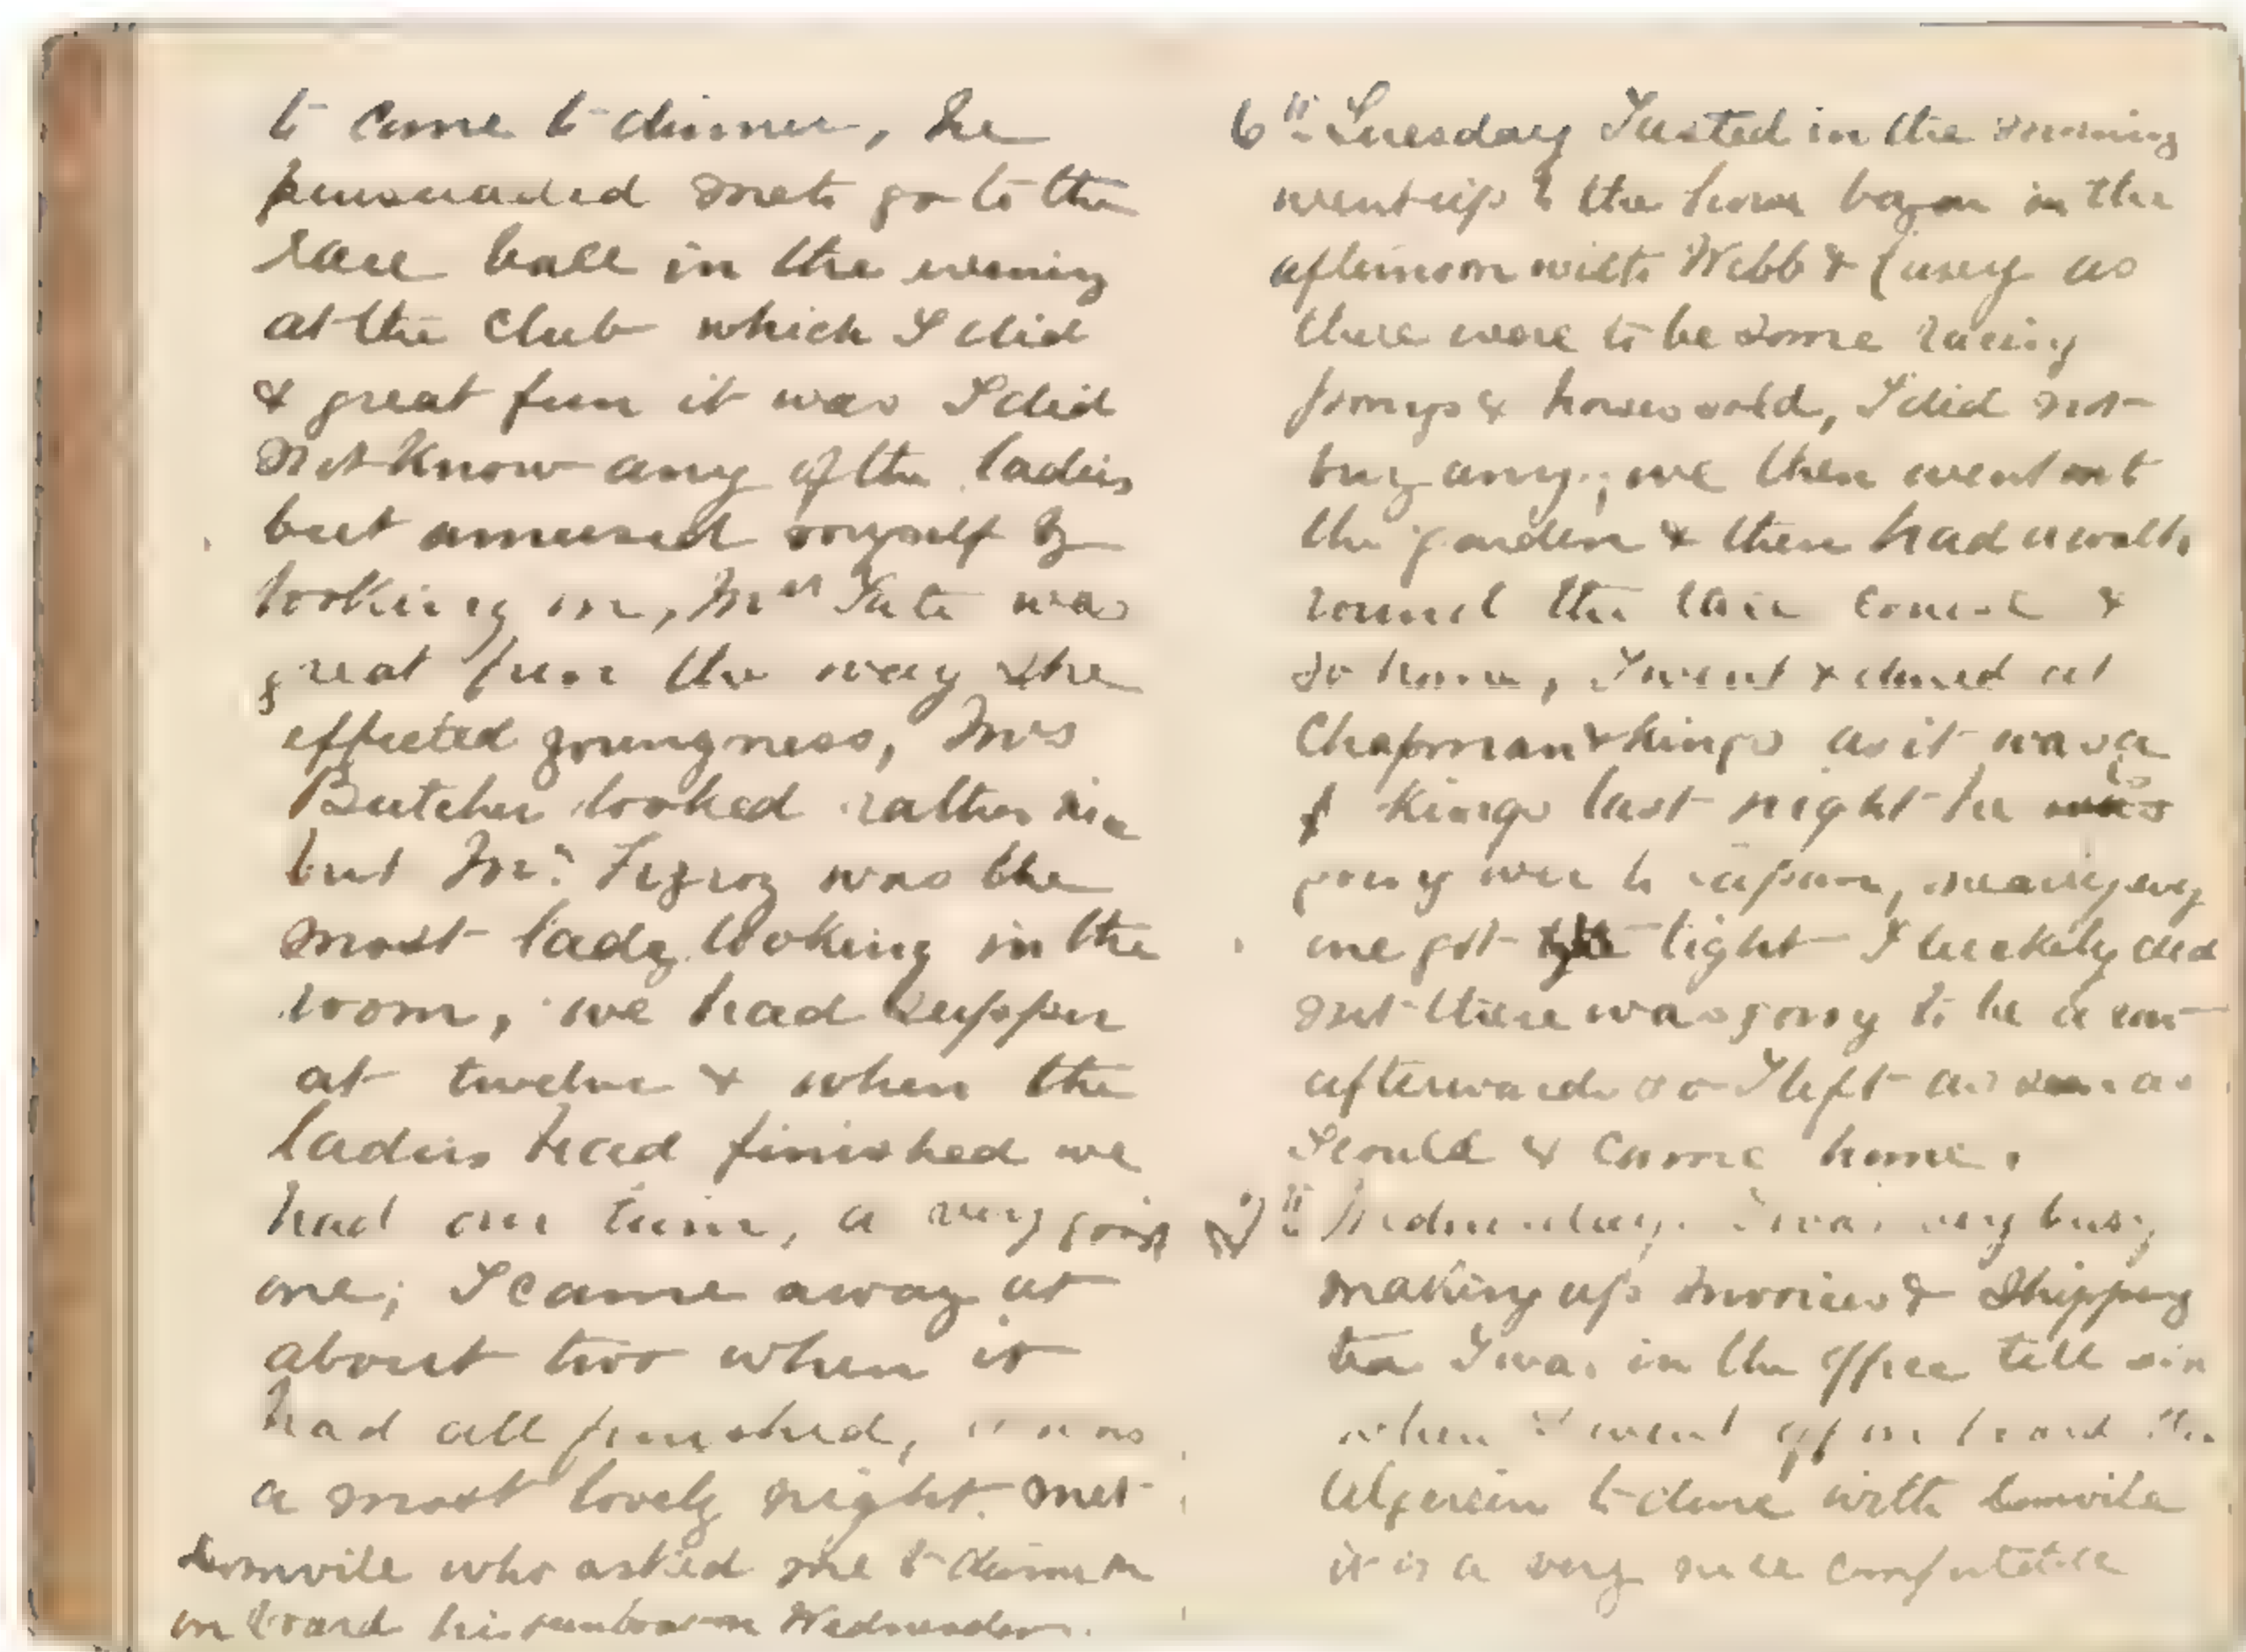 to come to dinner, he
persuaded me to go to the
race ball in the evening
at the Club which I did
& great fun it was I did
not know any of the ladies
but amused myself by
looking on, Mrs Tate was
great fun the way she
effected youngness, Mrs
Butcher looked rather nice
but Mrs was the
most lady looking in the
room, we had supper
at twelve & when the
ladies had finished we
had our turn, a very good
one; I came away at
about two when it
had all finished, it was
a most lovely night. met
Domvile who asked me to dinner
on board his gunboat on Wednesday.
6th Tuesday Tasted in the morning
went up to the in the
afternoon with Webb & as
there were to be some racing
ponys & horses sold, I did not
buy any; we then went out
the garden & then had a walk
round the race course &
so home, I went & dined at
Chapman & Kings as it was a
Kings last night he is
going over to Japan, nearly every
one got tight I luckily did
not there was going to be a row
afterwards so I left as soon as
I could & came home.
7th Wednesday. I was very busy
making up invoices & shipping
tea I was in the office till six
when I went off on board the
Algerien to dine with Domvile
it is a very nice comfortable